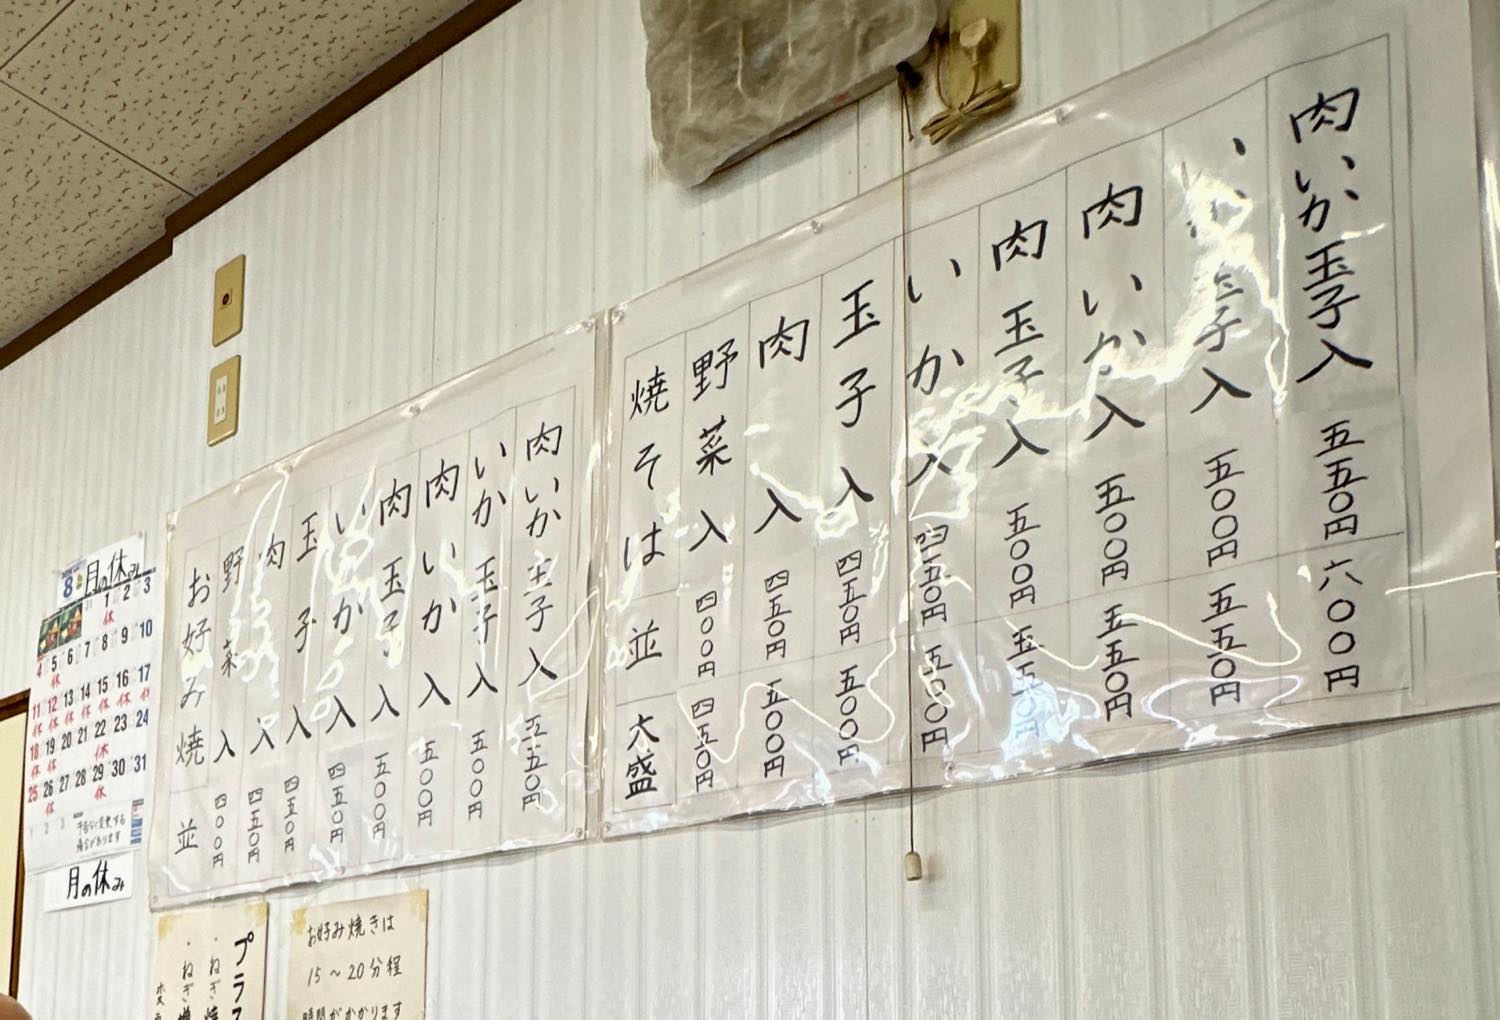 肉いか玉子入 五五〇円 六〇〇円
玉子入 五〇〇円 五五〇円
肉いか入 五〇〇円 五五〇円
肉玉子入 五〇〇円 五五〇円
いか入 四五〇円 五〇〇円
玉子入 四五〇円 五〇〇円
肉入 四五〇円 五〇〇円
野菜入 四〇〇円 四五〇円
焼そば 並 大盛
肉いか玉子入 五五〇円
いか玉子入 五〇〇円
肉いか入 五〇〇円
肉玉子入 五〇〇円
いか入 四五〇円
玉子入 四五〇円
肉入 四五〇円
野菜入 四〇〇円
お好み焼 並
8
月の休み
1 2 3
休
4 5 6 7 8 9 10
休
11 12 13 14 15 16 17
休 休 休 休 休 休 休
18 19 20 21 22 23 24
休 休 休
25 26 27 28 29 30 31
休 休
予告なく変更する
場合があります
月の休み
プラス
・ねぎ焼
・ねぎ
お好み焼きは
15〜20分程
時間がかかります